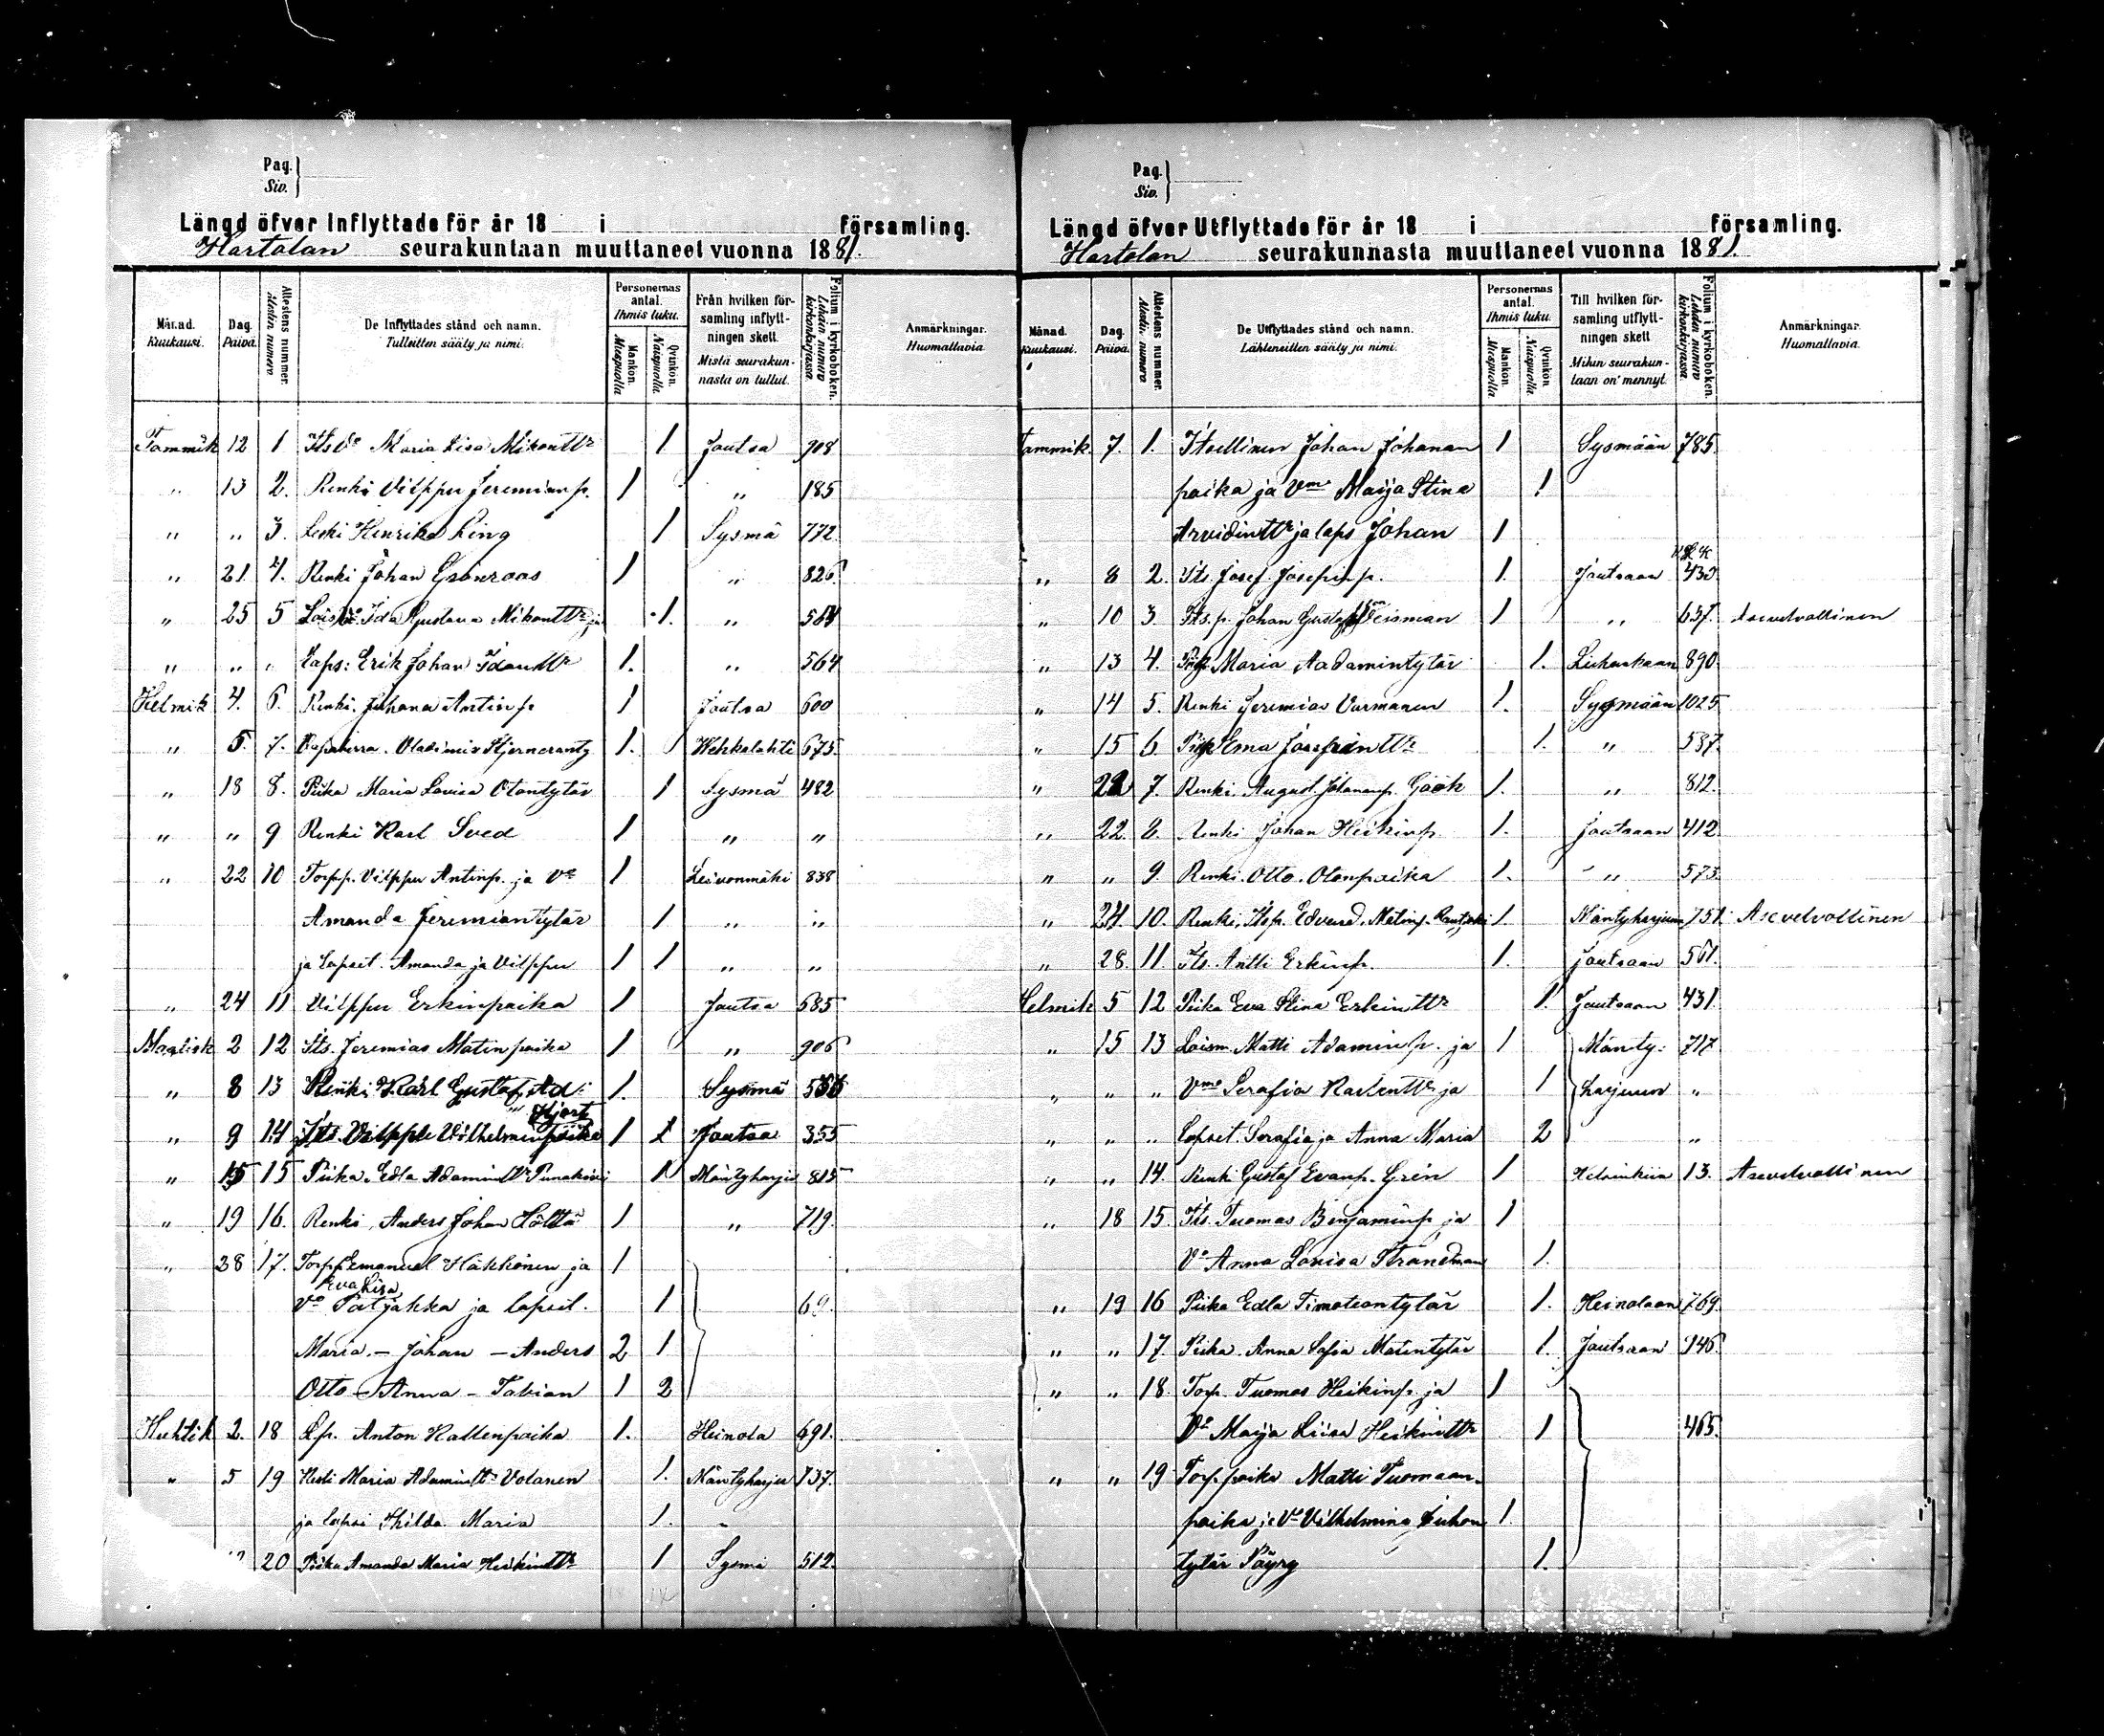 Pag.
Siv.
Längd öfver Inflyttade för år 18 i församling.
Hartolan seurakuntaan muuttaneet vuonna 1881.
Månad. Kuukausi.
Dag. Päivä.
Attestens nummer. Atestin numero
De Inflyttades stånd och namn. Tulleitten sääty ja nimi.
Personernas antal. Ihmis luku.
Mankön. Miespuolta
Qvinkön. Naispuolta
Från hvilken församling inflyttningen skett. Mistä seurakunnasta on tullut.
Folium i kyrkoboken. Lehden numero kirkonkirjassa
Anmärkningar. Huomattavia.
Tammik 12 1 Its Vo Maria Lisa Mikontr 1 Joutsa 908
" 13 2. Renki Vilppu Jeremianp. 1 " 185
" " 3. Leski Henrika Ring 1 Sysmä 772
" 21 4. Renki Johan Grönroos 1 " 826
" 25 5 Ida Gustava Mikontr ja 1 " 564
" " " Laps: Erik Johan 1. " 564
Helmik 4. 6. Renki. Juhana Antinp. 1 Joutsa 600
" 5. 7. Vladimir Stjerncrantz 1. Wehkalahti 675
" 18 8. Piika Maria Lovisa Otontytär 1 Sysmä 482
" " 9 Renki Karl Sved 1 " "
" 22 10 Torpp. Vilppu Antinp. ja Vo 1 Leivonmäki 838
Amanda Jeremiantytär 1 " "
ja Lapset. Amanda ja Vilppu 1 1 " "
" 24 11 Vilppu Erkinpoika 1 Joutsa 685
Maalisk 2 12 Its. Jeremias Matinpoika 1 " 906
" 8 13 Renki Karl Gustaf Ad: 1. Sysmä
Hjort
" 9 14 Its. Vilppu Vilhelminpoika 1 1 Joutsa 355
" 15 15 Piika. Edla Adamintr 1 Mäntyharju 815
" 19 16. Renki, Anders Johan Hölttä 1 " 719.
" 28 17. Torpp Emanuel Häkkönen ja 1
Eva Lisa
Vo Patjakka ja lapset. 1 69.
Maria. – Johan – Anders 2 1
Otto – Anna – Fabian 1 2
Huhtik 2. 18 Lp. Anton Kallenpoika 1. Heinola 691.
" 5 19 Leski Maria Adamintr Volanen 1. Mäntyharju 737.
ja lapsi Hilda Maria 1. "
20 Piika Amanda Maria Heikintr 1 Sysmä 512.
Pag.
Siv.
Längd öfver Utflyttade för år 18 i församling.
Hartolan seurakunnasta muuttaneet vuonna 1881.
Månad. Kuukausi.
Dag. Päivä.
Attestens nummer. Atestin numero
De Utflyttades stånd och namn. Lähteneitten sääty ja nimi.
Personernas antal. Ihmis luku.
Mankön. Miespuolta
Qvinkön. Naispuolta
Till hvilken församling utflyttningen skett Mihin seurakuntaan on mennyt.
Folium i kyrkoboken. Lehden numero kirkonkirjassa
Anmärkningar. Huomattavia
Tammik. 7. 1. Itsellinen Johan Johanan 1 Sysmään 785.
poika ja Vmo Maija Stina 1
Arvidintr ja laps Johan 1
" 8 2. Its. Josef Josefinp. 1. Joutsaan 430
" 10 3. Its. p. Johan Gustaf 1 " 637. Asevelvollinen
" 13 4. Piik Maria Aadamintytär 1. Liuhankaan 890.
" 14 5. Renki Jeremias Varmanen 1. Sysmään 1025
" 15 6. Piik Elma Josefintr 1. " 537.
" 22 7. Renki August Johananp. Gööh 1. " 812.
" 22. 8. Renki Johan Heikinp. 1. Joutsaan 412
" " 9. Renki. Otto. Otonpoika 1. " 573.
" 24. 10. Renki, Itsp. Edvard. Matinp. 1. Mäntyharjuun 751. Asevelvollinen
" 28. 11. Its. Antti Erkinp. 1. Joutsaan 561.
Helmik 5 12 Piika Eva Stina Erkintr 1. Joutsaan 431.
" 15 13 Loism. Matti Adaminp. ja 1 Mänty: 717
" " " Vmo Serafia Kallentr ja 1 harjuun "
" " " lapset. Serafia ja Anna Maria 2 "
" " 14. Renki Gustaf Evanp. Grén 1 Helsinkiin 13. Asevelvollinen
" 18 15. Its. Tuomas Benjaminp ja 1
Vo Anna Lovisa Strandman 1.
" 19 16 Piika Edla Timoteontytär 1. Heinolaan 769.
" " 17. Piika. Anna Sofia Matintytär 1. Joutsaan 946.
" " 18. Torp. Tuomas Heikinp. ja 1
Vo Maija Liisa Heikintr 1 465.
" " 19 Torp. poika Matti Tuomaan
poika ja Vo Vilhelmina Juhon 1.
tytär Päyry 1.